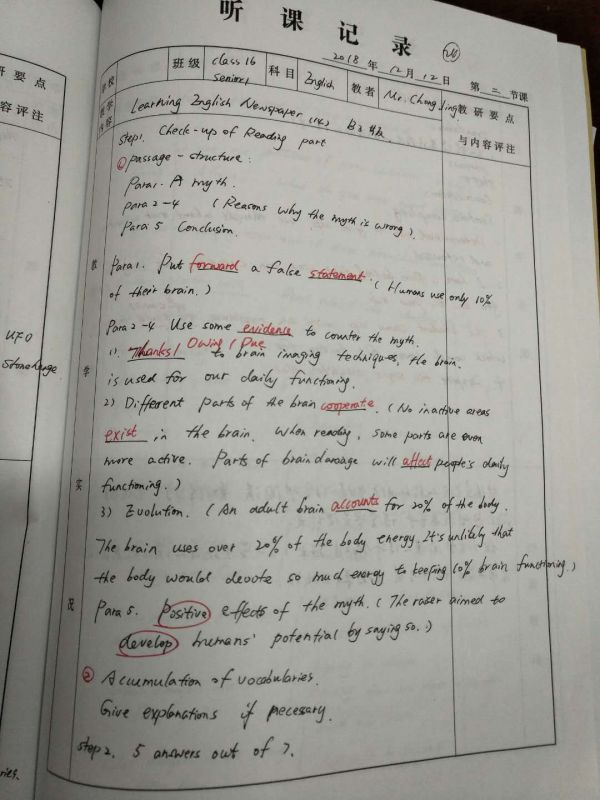 听课记录
24
2018年12月12日 第二节课
学校 班级 Class 16 Senior 1 科目 English 教者 Mr. Chong Jing
教研要点
与内容评注
教学内容 Learning English Newspaper (14) B3版
Step1. Check-up of Reading part
① passage-structure:
Para1. A myth.
para 2-4 (Reasons why the myth is wrong).
Para 5 Conclusion.
Para1. Put forward a false statement. (Humans use only 10%
of their brain.)
Para 2-4 Use some evidence to counter the myth.
1). Thanks / Owing / Due to brain imaging techniques, the brain
is used for our daily functioning.
2) Different parts of the brain cooperate. (No inactive areas
exist in the brain. When reading, some parts are even
more active. Parts of brain damage will affect people's daily
functioning.)
3) Evolution. (An adult brain accounts for 20% of the body.
The brain uses over 20% of the body energy. It's unlikely that
the body would devote so much energy to keeping 10% brain functioning.)
Para 5. Positive effects of the myth. (The raiser aimed to
develop humans' potential by saying so.)
② Accumulation of vocabularies.
Give explanations if necessary.
Step 2. 5 answers out of 7.
教学实况
研要点
内容评注
UFO
Stonehenge